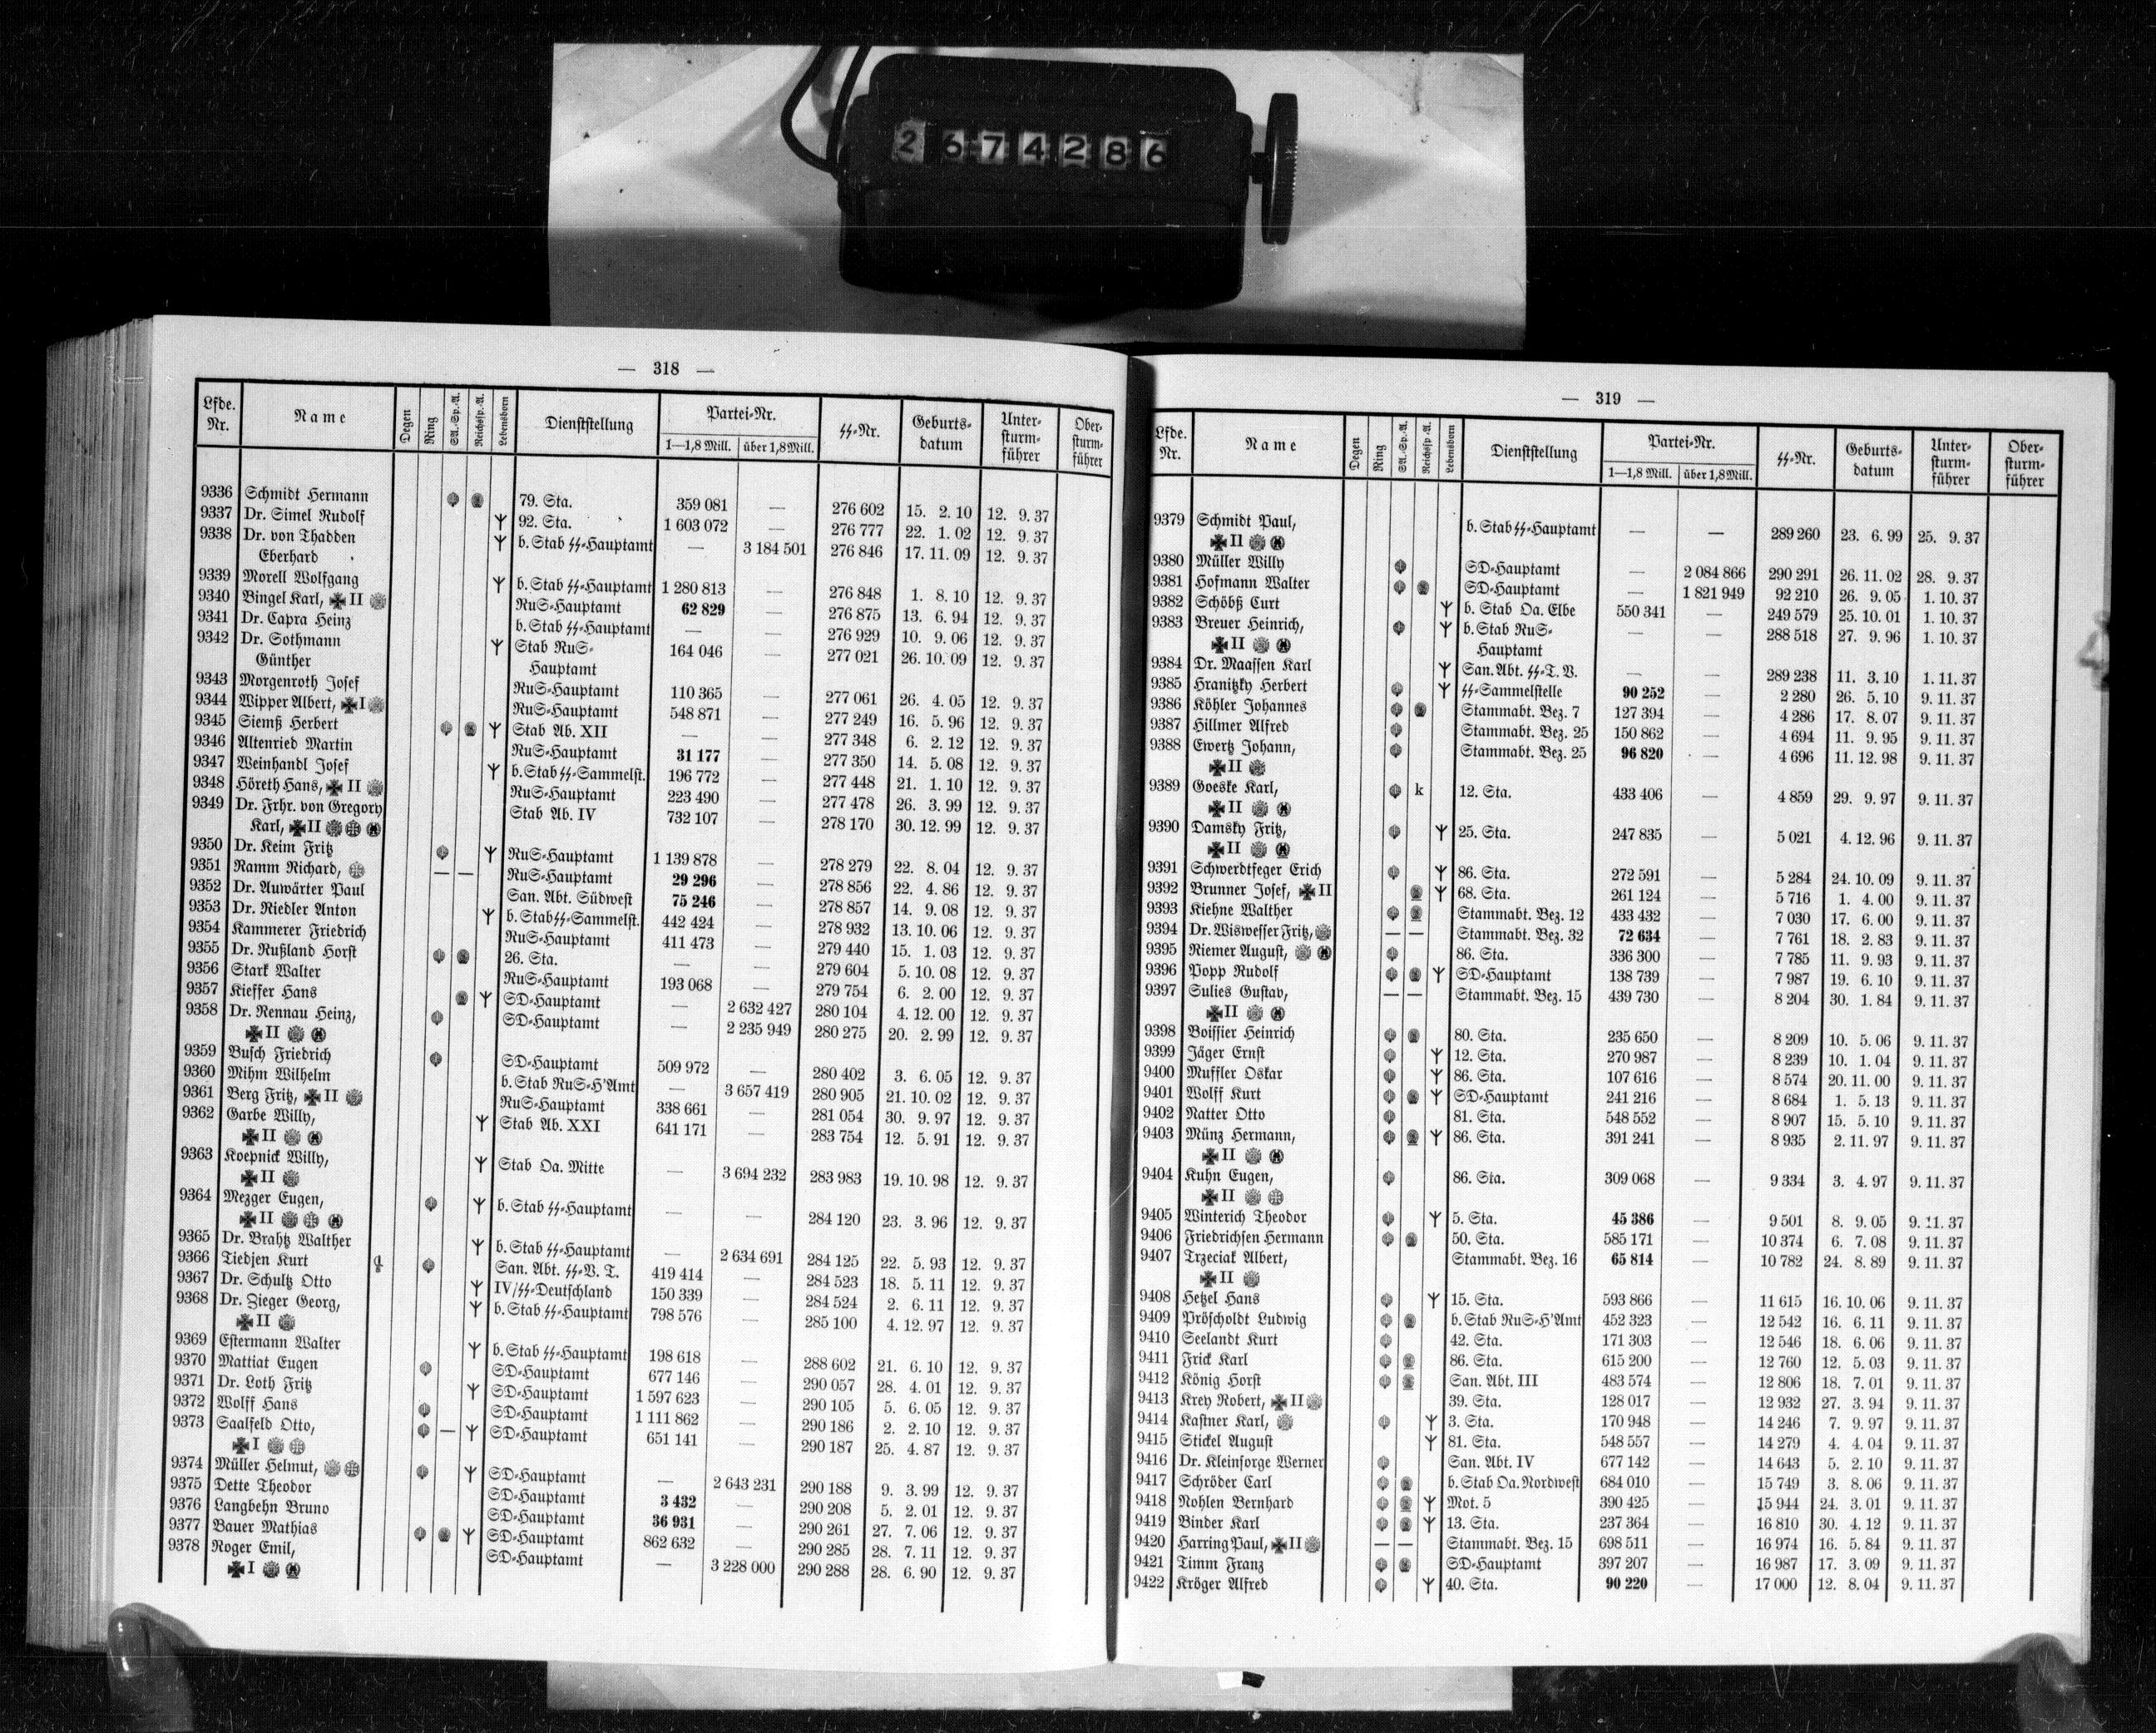 2674286
— 318 —
Lfde. Nr. Name Degen Ring SA.-Sp.-A. Reichssp.-A. Lebensborn Dienststellung Partei-Nr. 1—1,8 Mill. über 1,8 Mill. SS-Nr. Geburts-datum Unter-sturm-führer Ober-sturm-führer
9336 Schmidt Hermann 79. Sta. 359 081 — 276 602 15. 2. 10 12. 9. 37
9337 Dr. Simel Rudolf 92. Sta. 1 603 072 — 276 777 22. 1. 02 12. 9. 37
9338 Dr. von Thadden b. Stab SS-Hauptamt — 3 184 501 276 846 17. 11. 09 12. 9. 37
Eberhard
9339 Morell Wolfgang b. Stab SS-Hauptamt 1 280 813 — 276 848 1. 8. 10 12. 9. 37
9340 Bingel Karl, II RuS-Hauptamt 62 829 — 276 875 13. 6. 94 12. 9. 37
9341 Dr. Capra Heinz b. Stab SS-Hauptamt — — 276 929 10. 9. 06 12. 9. 37
9342 Dr. Sothmann Stab RuS- 164 046 — 277 021 26. 10. 09 12. 9. 37
Günther Hauptamt
9343 Morgenroth Josef RuS-Hauptamt 110 365 — 277 061 26. 4. 05 12. 9. 37
9344 Wipper Albert, I RuS-Hauptamt 548 871 — 277 249 16. 5. 96 12. 9. 37
9345 Siemß Herbert Stab Ab. XII — — 277 348 6. 2. 12 12. 9. 37
9346 Altenried Martin RuS-Hauptamt 31 177 — 277 350 14. 5. 08 12. 9. 37
9347 Weinhandl Josef b. Stab SS-Sammelst. 196 772 — 277 448 21. 1. 10 12. 9. 37
9348 Höreth Hans, II RuS-Hauptamt 223 490 — 277 478 26. 3. 99 12. 9. 37
9349 Dr. Frhr. von Gregory Stab Ab. IV 732 107 — 278 170 30. 12. 99 12. 9. 37
Karl, II
9350 Dr. Keim Fritz RuS-Hauptamt 1 139 878 — 278 279 22. 8. 04 12. 9. 37
9351 Ramm Richard, — — RuS-Hauptamt 29 296 — 278 856 22. 4. 86 12. 9. 37
9352 Dr. Auwärter Paul San. Abt. Südwest 75 246 — 278 857 14. 9. 08 12. 9. 37
9353 Dr. Riedler Anton b. Stab SS-Sammelst. 442 424 — 278 932 13. 10. 06 12. 9. 37
9354 Kammerer Friedrich RuS-Hauptamt 411 473 — 279 440 15. 1. 03 12. 9. 37
9355 Dr. Rußland Horst 26. Sta. — — 279 604 5. 10. 08 12. 9. 37
9356 Stark Walter RuS-Hauptamt 193 068 — 279 754 6. 2. 00 12. 9. 37
9357 Kieffer Hans SD-Hauptamt — 2 632 427 280 104 4. 12. 00 12. 9. 37
9358 Dr. Rennau Heinz, SD-Hauptamt — 2 235 949 280 275 20. 2. 99 12. 9. 37
II
9359 Busch Friedrich SD-Hauptamt 509 972 — 280 402 3. 6. 05 12. 9. 37
9360 Mihm Wilhelm b. Stab RuS-H'Amt — 3 657 419 280 905 21. 10. 02 12. 9. 37
9361 Berg Fritz, II RuS-Hauptamt 338 661 — 281 054 30. 9. 97 12. 9. 37
9362 Garbe Willy, Stab Ab. XXI 641 171 — 283 754 12. 5. 91 12. 9. 37
II
9363 Koepnick Willy, Stab Oa. Mitte — 3 694 232 283 983 19. 10. 98 12. 9. 37
II
9364 Mezger Eugen, b. Stab SS-Hauptamt — — 284 120 23. 3. 96 12. 9. 37
II
9365 Dr. Brahtz Walther b. Stab SS-Hauptamt — 2 634 691 284 125 22. 5. 93 12. 9. 37
9366 Tiedjen Kurt San. Abt. SS-V. T. 419 414 — 284 523 18. 5. 11 12. 9. 37
9367 Dr. Schultz Otto IV/SS-Deutschland 150 339 — 284 524 2. 6. 11 12. 9. 37
9368 Dr. Zieger Georg, b. Stab SS-Hauptamt 798 576 — 285 100 4. 12. 97 12. 9. 37
II
9369 Estermann Walter b. Stab SS-Hauptamt 198 618 — 288 602 21. 6. 10 12. 9. 37
9370 Mattiat Eugen SD-Hauptamt 677 146 — 290 057 28. 4. 01 12. 9. 37
9371 Dr. Loth Fritz SD-Hauptamt 1 597 623 — 290 105 5. 6. 05 12. 9. 37
9372 Wolff Hans SD-Hauptamt 1 111 862 — 290 186 2. 2. 10 12. 9. 37
9373 Saalfeld Otto, — SD-Hauptamt 651 141 — 290 187 25. 4. 87 12. 9. 37
I
9374 Müller Helmut, SD-Hauptamt — 2 643 231 290 188 9. 3. 99 12. 9. 37
9375 Dette Theodor SD-Hauptamt 3 432 — 290 208 5. 2. 01 12. 9. 37
9376 Langbehn Bruno SD-Hauptamt 36 931 — 290 261 27. 7. 06 12. 9. 37
9377 Bauer Mathias SD-Hauptamt 862 632 — 290 285 28. 7. 11 12. 9. 37
9378 Roger Emil, SD-Hauptamt — 3 228 000 290 288 28. 6. 90 12. 9. 37
I
— 319 —
Lfde. Nr. Name Degen Ring SA.-Sp.-A. Reichssp.-A. Lebensborn Dienststellung Partei-Nr. 1—1,8 Mill. über 1,8 Mill. SS-Nr. Geburts-datum Unter-sturm-führer Ober-sturm-führer
9379 Schmidt Paul, b. Stab SS-Hauptamt — — 289 260 23. 6. 99 25. 9. 37
II
9380 Müller Willy SD-Hauptamt — 2 084 866 290 291 26. 11. 02 28. 9. 37
9381 Hofmann Walter SD-Hauptamt — 1 821 949 92 210 26. 9. 05 1. 10. 37
9382 Schöbß Curt b. Stab Oa. Elbe 550 341 — 249 579 25. 10. 01 1. 10. 37
9383 Breuer Heinrich, b. Stab RuS- — — 288 518 27. 9. 96 1. 10. 37
II Hauptamt
9384 Dr. Maassen Karl San. Abt. SS-T. V. — — 289 238 11. 3. 10 1. 11. 37
9385 Hranitzky Herbert SS-Sammelstelle 90 252 — 2 280 26. 5. 10 9. 11. 37
9386 Köhler Johannes Stammabt. Bez. 7 127 394 — 4 286 17. 8. 07 9. 11. 37
9387 Hillmer Alfred Stammabt. Bez. 25 150 862 — 4 694 11. 9. 95 9. 11. 37
9388 Ewertz Johann, Stammabt. Bez. 25 96 820 — 4 696 11. 12. 98 9. 11. 37
II
9389 Goeske Karl, k 12. Sta. 433 406 — 4 859 29. 9. 97 9. 11. 37
II
9390 Damsky Fritz, 25. Sta. 247 835 — 5 021 4. 12. 96 9. 11. 37
II
9391 Schwerdtfeger Erich 86. Sta. 272 591 — 5 284 24. 10. 09 9. 11. 37
9392 Brunner Josef, II 68. Sta. 261 124 — 5 716 1. 4. 00 9. 11. 37
9393 Kiehne Walther Stammabt. Bez. 12 433 432 — 7 030 17. 6. 00 9. 11. 37
9394 Dr. Wiswesser Fritz, — — Stammabt. Bez. 32 72 634 — 7 761 18. 2. 83 9. 11. 37
9395 Riemer August, 86. Sta. 336 300 — 7 785 11. 9. 93 9. 11. 37
9396 Popp Rudolf SD-Hauptamt 138 739 — 7 987 19. 6. 10 9. 11. 37
9397 Sulies Gustav, — — Stammabt. Bez. 15 439 730 — 8 204 30. 1. 84 9. 11. 37
II
9398 Boissier Heinrich 80. Sta. 235 650 — 8 209 10. 5. 06 9. 11. 37
9399 Jäger Ernst 12. Sta. 270 987 — 8 239 10. 1. 04 9. 11. 37
9400 Muffler Oskar 86. Sta. 107 616 — 8 574 20. 11. 00 9. 11. 37
9401 Wolff Kurt SD-Hauptamt 241 216 — 8 684 1. 5. 13 9. 11. 37
9402 Natter Otto 81. Sta. 548 552 — 8 907 15. 5. 10 9. 11. 37
9403 Münz Hermann, 86. Sta. 391 241 — 8 935 2. 11. 97 9. 11. 37
II
9404 Kuhn Eugen, 86. Sta. 309 068 — 9 334 3. 4. 97 9. 11. 37
II
9405 Winterich Theodor 5. Sta. 45 386 — 9 501 8. 9. 05 9. 11. 37
9406 Friedrichsen Hermann 50. Sta. 585 171 — 10 374 6. 7. 08 9. 11. 37
9407 Trzeciak Albert, Stammabt. Bez. 16 65 814 — 10 782 24. 8. 89 9. 11. 37
II
9408 Hetzel Hans 15. Sta. 593 866 — 11 615 16. 10. 06 9. 11. 37
9409 Pröscholdt Ludwig b. Stab RuS-H'Amt 452 323 — 12 542 16. 6. 11 9. 11. 37
9410 Seelandt Kurt 42. Sta. 171 303 — 12 546 18. 6. 06 9. 11. 37
9411 Frick Karl 86. Sta. 615 200 — 12 760 12. 5. 03 9. 11. 37
9412 König Horst San. Abt. III 483 574 — 12 806 18. 7. 01 9. 11. 37
9413 Krey Robert, II 39. Sta. 128 017 — 12 932 27. 3. 94 9. 11. 37
9414 Kastner Karl, 3. Sta. 170 948 — 14 246 7. 9. 97 9. 11. 37
9415 Stickel August 81. Sta. 548 557 — 14 279 4. 4. 04 9. 11. 37
9416 Dr. Kleinsorge Werner San. Abt. IV 677 142 — 14 643 5. 2. 10 9. 11. 37
9417 Schröder Carl b. Stab Oa. Nordwest 684 010 — 15 749 3. 8. 06 9. 11. 37
9418 Nohlen Bernhard Mot. 5 390 425 — 15 944 24. 3. 01 9. 11. 37
9419 Binder Karl 13. Sta. 237 364 — 16 810 30. 4. 12 9. 11. 37
9420 Harring Paul, II — — Stammabt. Bez. 15 698 511 — 16 974 16. 5. 84 9. 11. 37
9421 Timm Franz SD-Hauptamt 397 207 — 16 987 17. 3. 09 9. 11. 37
9422 Kröger Alfred 40. Sta. 90 220 — 17 000 12. 8. 04 9. 11. 37